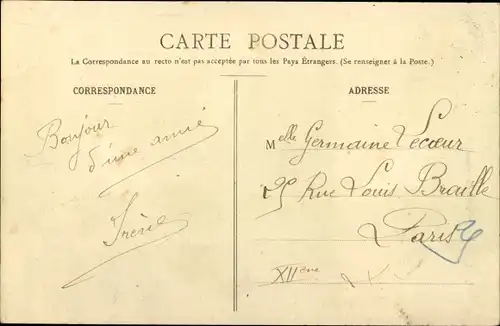 CARTE POSTALE
La Correspondance au recto n'est pas acceptée par tous les Pays Étrangers. (Se renseigner à la Poste.)
CORRESPONDANCE
Bonjour
d'une amie
Irène
ADRESSE
Melle Germaine Lecoeur
25 Rue Louis Braille
Paris
XIIeme